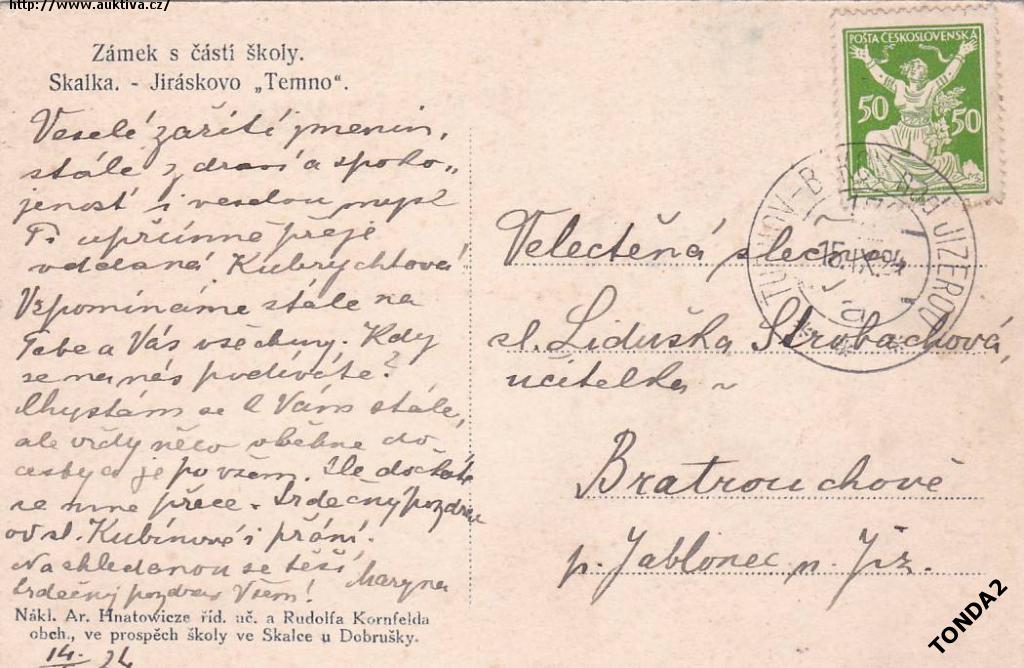 http://www.auktiva.cz/
Zámek s částí školy.
Skalka. - Jiráskovo „Temno“.
Veselé zaříti jmenin,
stále zdraví a spoko„
jenost i veselou mysl
Ti upřímně přeje
oddaná Kubrychtová.
Vzpomínáme stále na
Tebe a Vás všechny. Kdy
se na nás podíváte?
Chystám se k Vám stále,
ale vždy něco vběhne do
cesty a je po všem. Ale dočkáte
se mne přece. Srdečný pozdrav
od sl. Kubínové i přání.
Na shledanou se těší
Maryna
Srdečný pozdrav Všem!
Nákl. Ar. Hnatowicze říd. uč. a Rudolfa Kornfelda
obch., ve prospěch školy ve Skalce u Dobrušky.
14. 24
POŠTA ČESKOSLOVENSKÁ
50 50
NAD JIZEROU
15.IX.24
a
Velectěná slečna
sl. Liduška Strobachová,
učitelka
Bratrouchově
p. Jablonec n. Jiz.
TONDA2